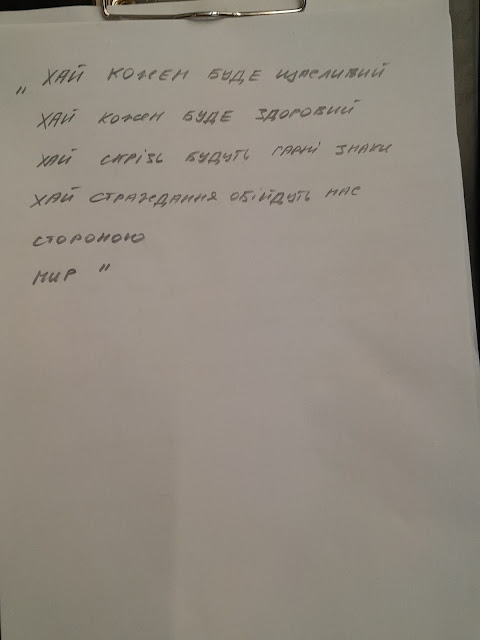 „ ХАЙ КОЖЕН БУДЕ ЩАСЛИВИЙ
ХАЙ КОЖЕН БУДЕ ЗДОРОВИЙ
ХАЙ СКРІЗЬ БУДУТЬ ГАРНІ ЗНАКИ
ХАЙ СТРАЖДАННЯ ОБІЙДУТЬ НАС
СТОРОНОЮ
МИР "